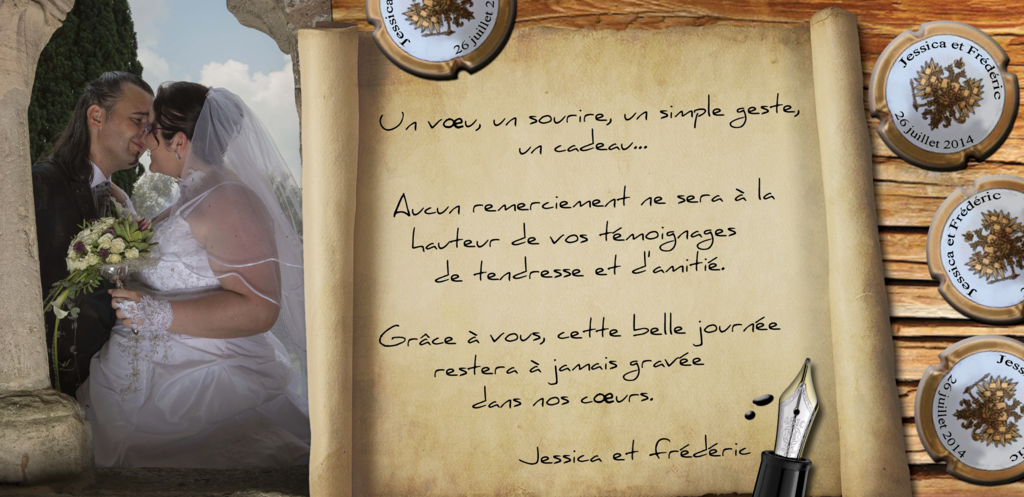 Jessica
26 juillet 2
Un vœu, un sourire, un simple geste,
un cadeau...
Aucun remerciement ne sera à la
hauteur de vos témoignages
de tendresse et d'amitié.
Grâce à vous, cette belle journée
restera à jamais gravée
dans nos cœurs.
Jessica et frédéric
Jessica et Frédéric
26 juillet 2014
Jessica et Frédéric
Jess
26 juillet 2014